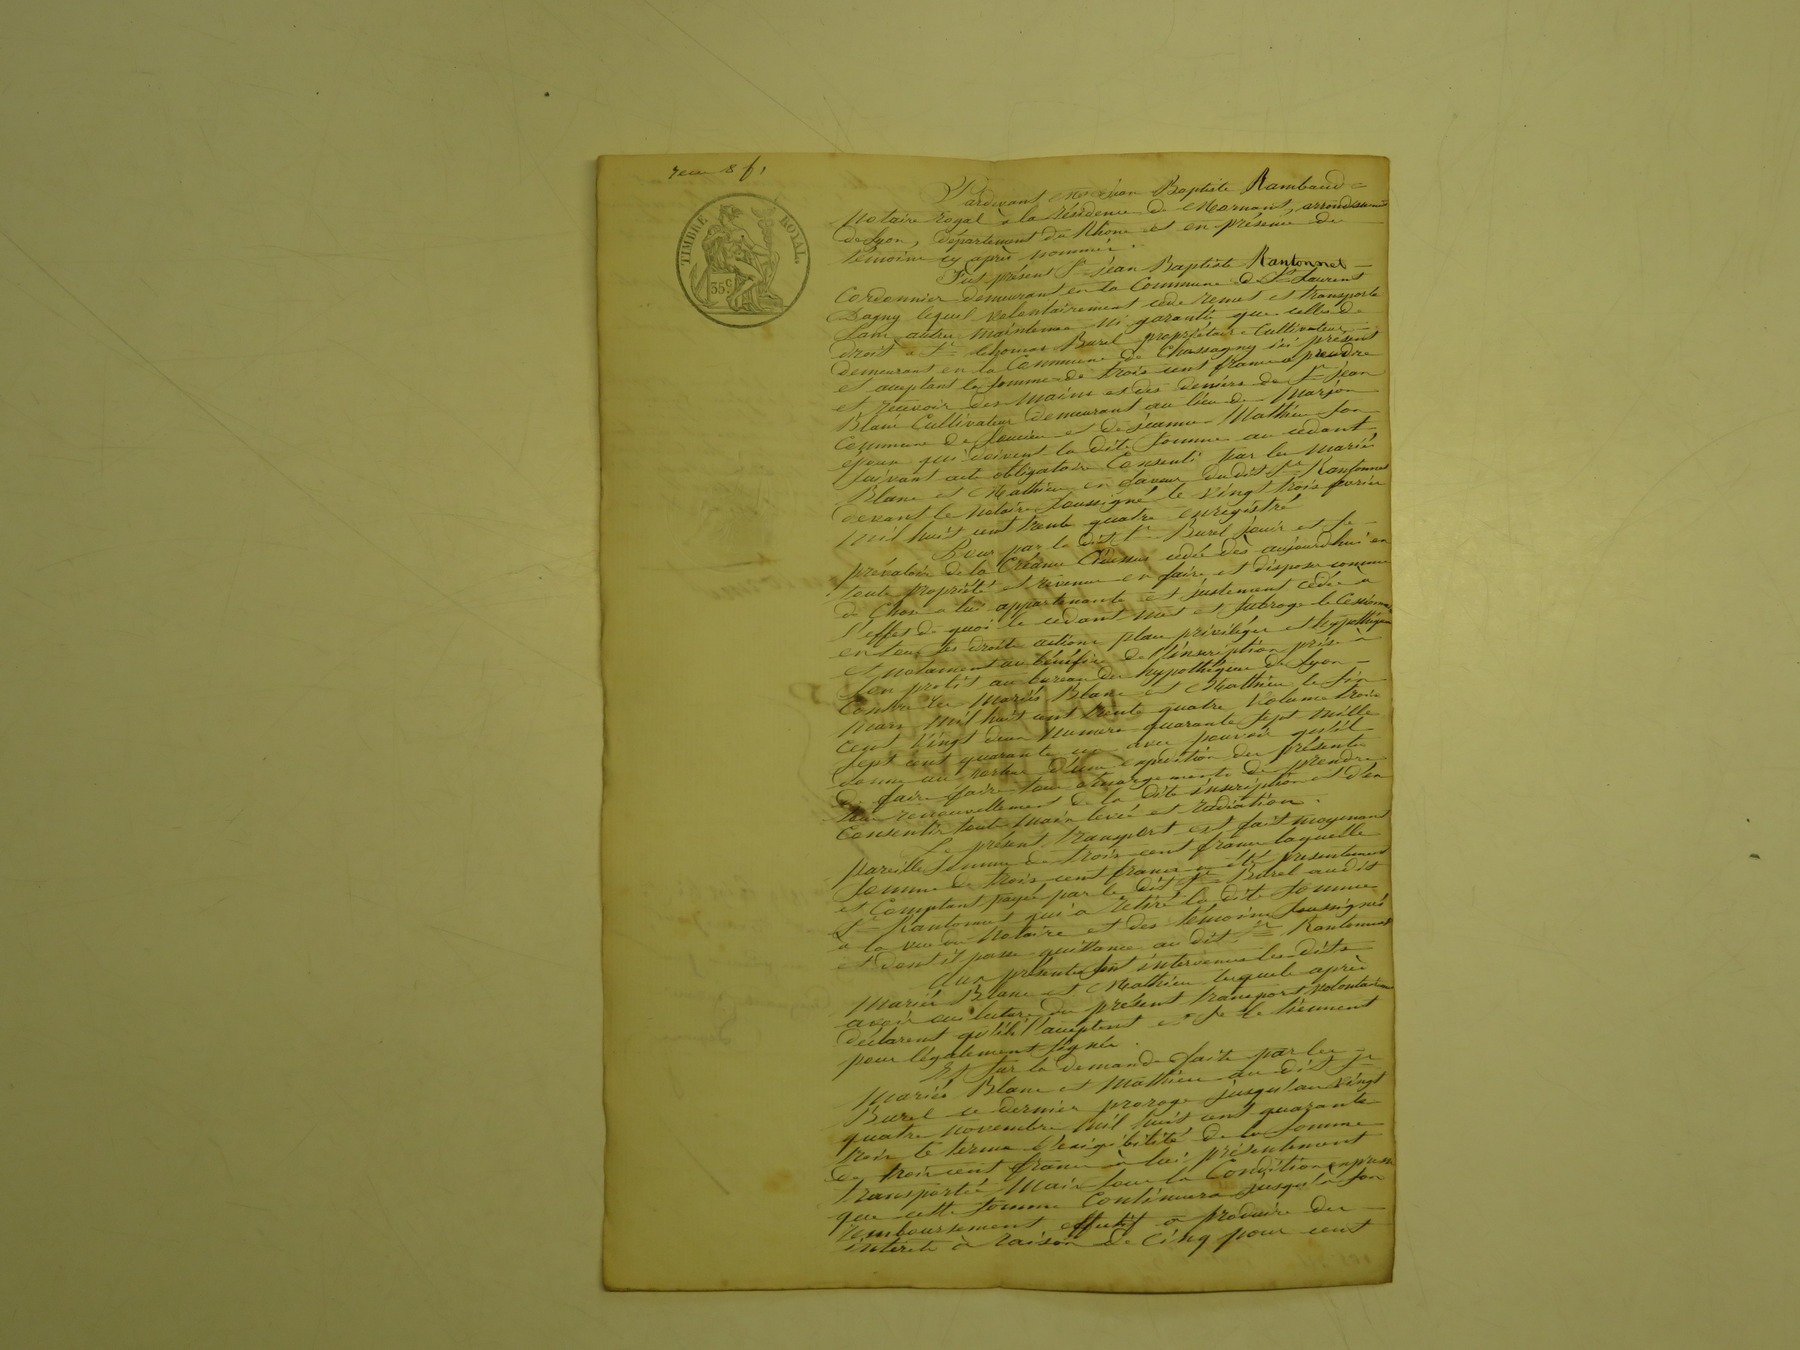 reçu 8 f,
TIMBRE ROYAL.
35 c
Pardevant Me Jean Baptiste Rambaud
Notaire royal à la résidence de Mornant, arrondissement
de Lyon, département du Rhône et en présence de
témoins cy après nommés.
Fut présent Sr Jean Baptiste Rantonnet
Cordonnier demeurant en la Commune de St Laurent
Dagny lequel volontairement cède remet et transporte
sans autre maintenue ni garantie que celles de
droit à Sr Burel propriétaire Cultivateur
demeurant en la Commune de Chassagny ici présent
et acceptant la somme de trois cent francs à prendre
et recevoir des mains et des deniers de Sr Jean
Blanc Cultivateur demeurant au lieu de Marjon
Commune de Soucieu et de Jeanne Mathieu son
épouse qui doivent la dite somme au cédant
suivant acte obligatoire Consenti par les mariés
Blanc et Mathieu en faveur du dit Sr Rantonnet
devant le Notaire soussigné le vingt trois février
mil huit cent trente quatre enregistré
Pour par le dit Sr Burel jouir et se
prévaloir de la Créance Cidessus cédée dès aujourdhui en
toute propriété et revenus en faire et disposer comme
de Chose à lui appartenante et justement cédée à
l'effet de quoi le cédant met et subroge le Cessionnaire
en tous ses droits actions place privilèges et hypothèques
et notamment au bénéfice de l'inscription prise à
son profit au bureau des hypothèques de Lyon
Contre les Mariés Blanc et Mathieu le six
mars mil huit cent trente quatre volume trois
cent vingt deux numéro quarante sept mille
sept cent quarante un avec pouvoir qu'il
donne au porteur d'une expédition des présentes
de faire faire tous émargements de prendre
tous renouvellements de la dite inscription et d'en
Consentir toute main levée et radiation.
Le présent transport est fait moyennant
pareille somme de trois cent francs laquelle
somme de trois cent francs a été présentement
et Comptant payée par le dit Sr Burel audit
Sr Rantonnet qui a retiré la dite somme
à la vue du Notaire et des témoins soussignés
et dont il passe quittance au dit Sr Rantonnet
Aux présentes sont intervenus les dits
Mariés Blanc et Mathieu lesquels après
avoir oui lecture du présent transport volontairement
déclarent qu'ils l'acceptent et se le tiennent
pour légalement signifié.
Et sur la demande faite par les
Mariés Blanc et Mathieu au dit Sr
Burel ce dernier proroge jusqu'au vingt
quatre novembre mil huit cent quarante
trois le terme d'exigibilité de la somme
de trois cent francs à lui présentement
transportée Mais sous la Condition expresse
que cette somme Continuera jusqu'à son
remboursement effectif à produire des
intérêts à raison de Cinq pour cent